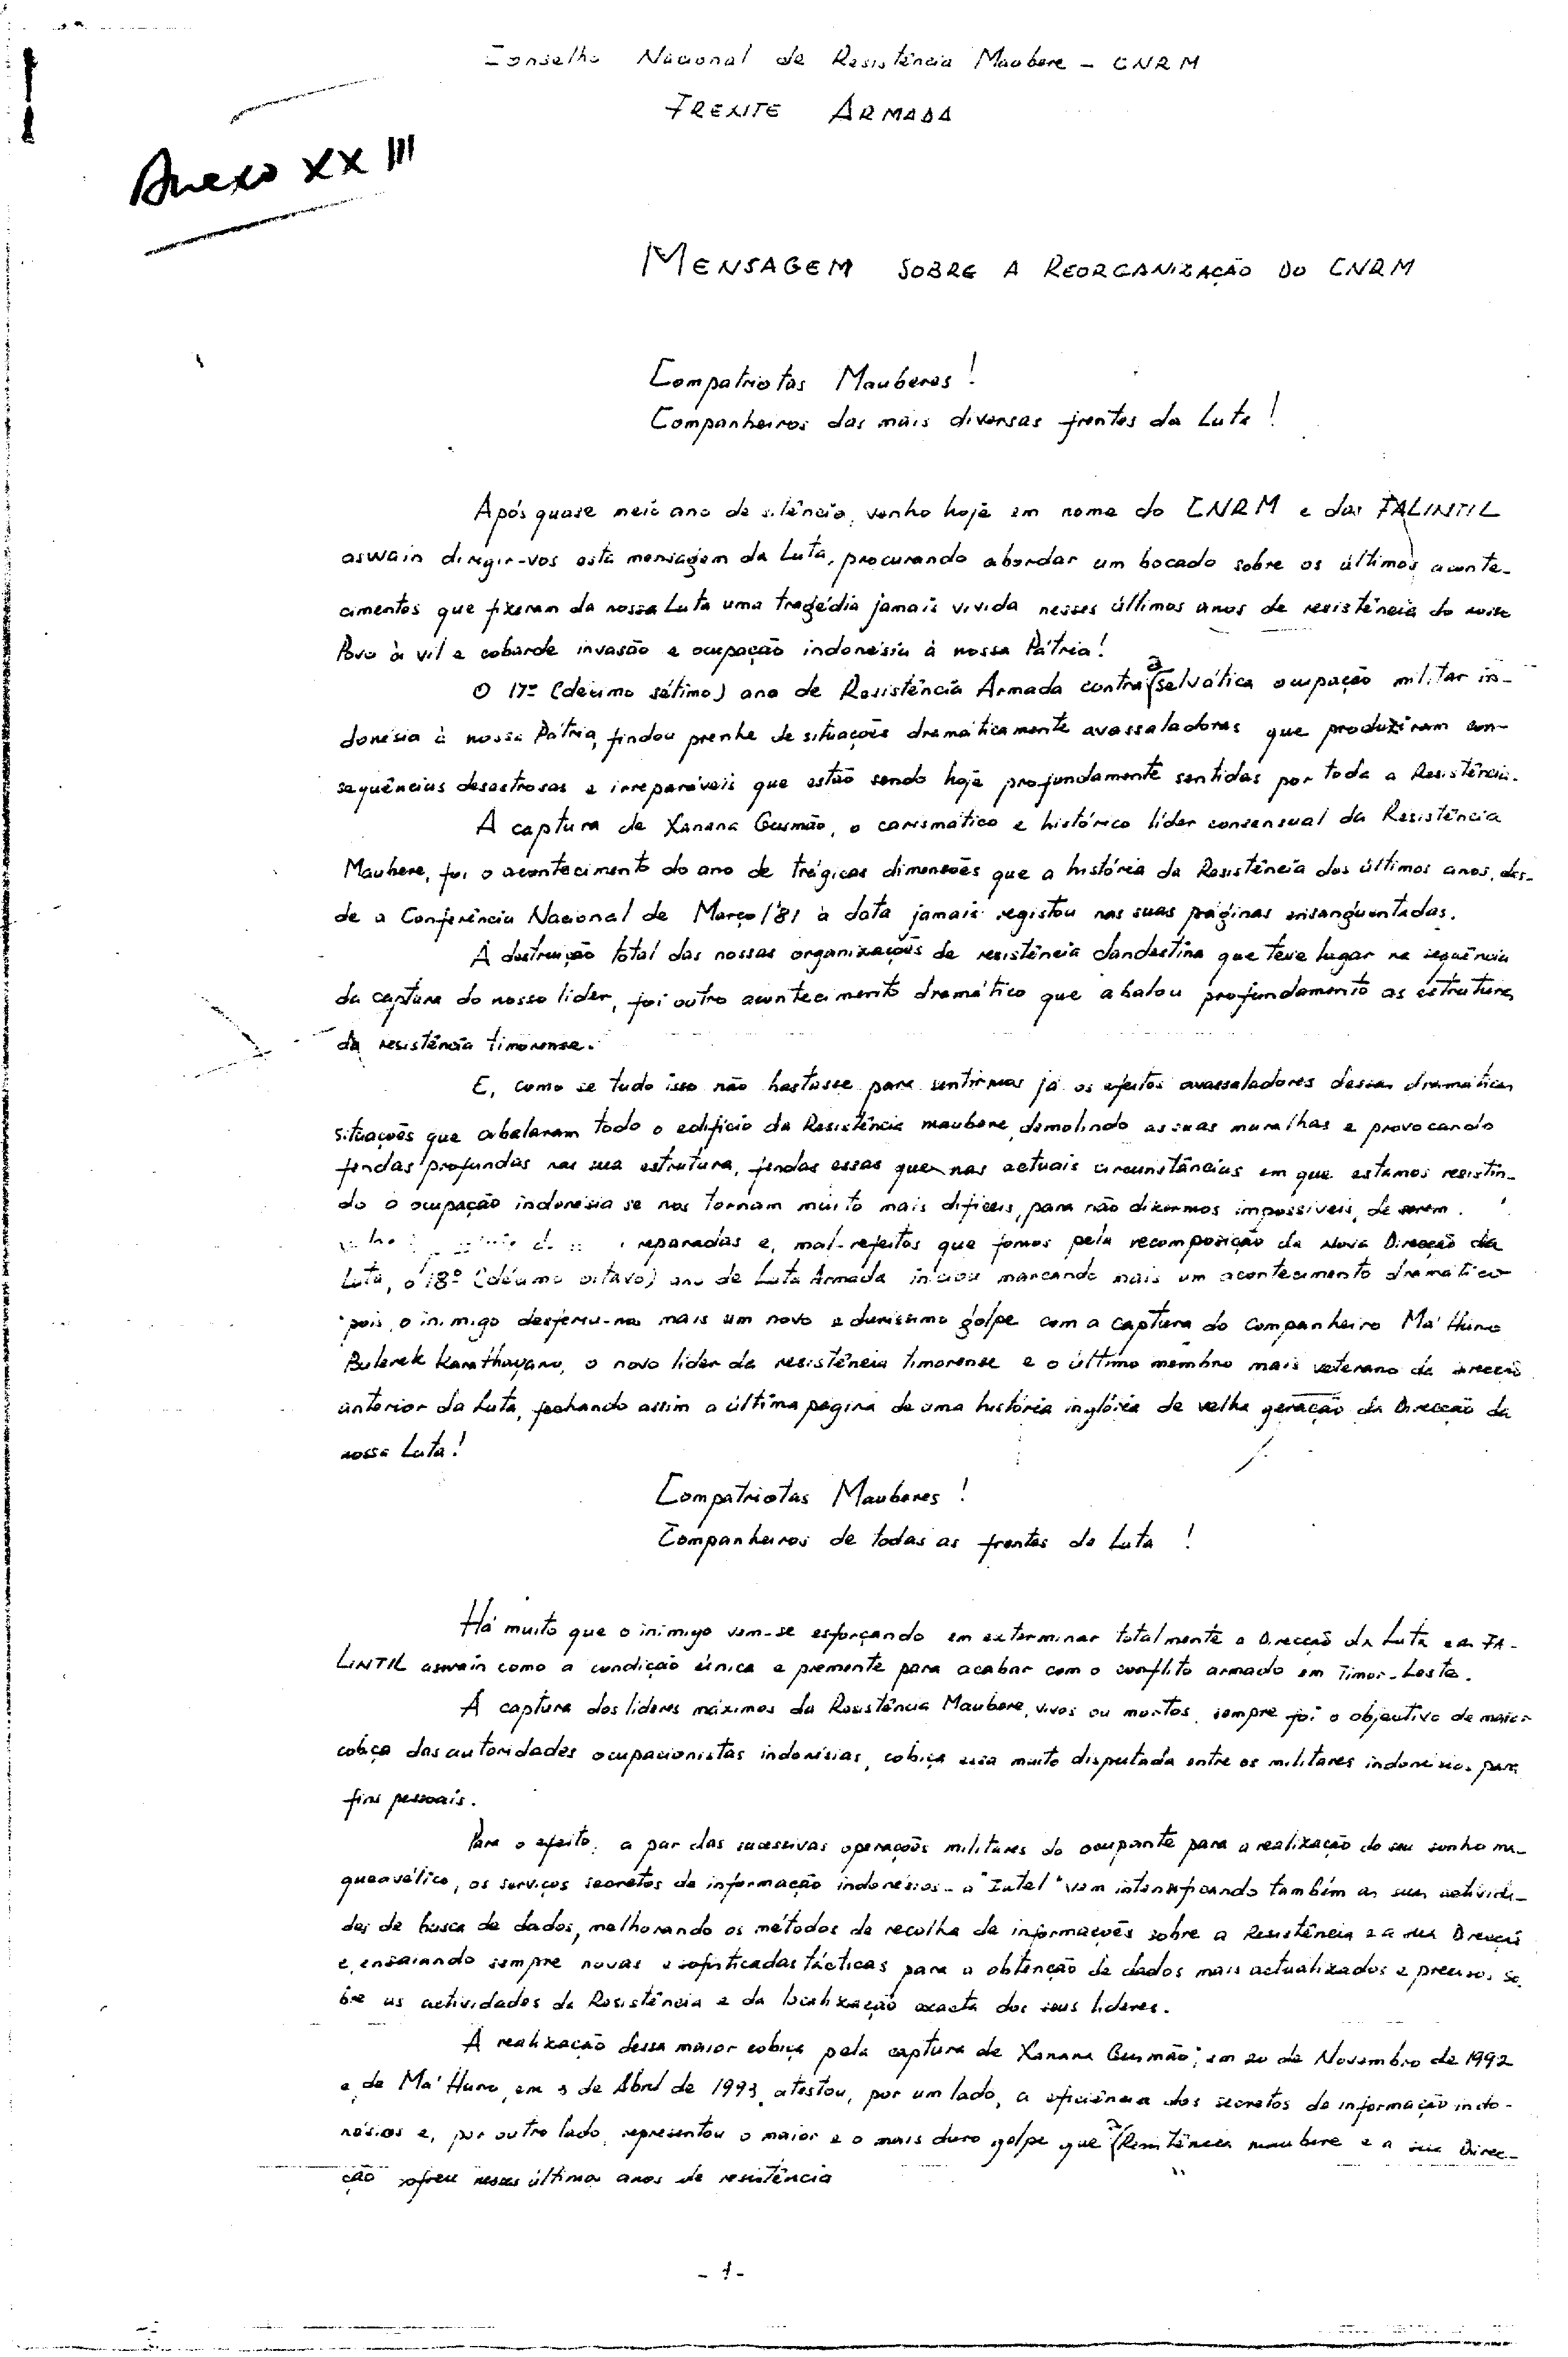 Conselho Nacional de Resistência Maubere - CNRM
FRENTE ARMADA
Anexo XXIII
MENSAGEM SOBRE A REORGANIZAÇÃO DO CNRM
Compatriotas Mauberes!
Companheiros das mais diversas frentes da Luta!
Após quase meio ano de silêncio, venho hoje em nome do CNRM e das FALINTIL
aswain dirigir-vos esta mensagem da Luta, procurando abordar um bocado sobre os últimos aconte-
cimentos que fizeram da nossa Luta uma tragédia jamais vivida nesses últimos anos de resistência do nosso
Povo à vil e cobarde invasão e ocupação indonésia à nossa Pátria!
O 17º (décimo sétimo) ano de Resistência Armada contra a selvática ocupação militar in-
donésia à nossa Pátria, findou prenhe de situações dramáticamente avassaladoras que produziram con-
sequências desastrosas e irreparáveis que estão sendo hoje profundamente sentidas por toda a Resistência.
A captura de Xanana Gusmão, o carismático e histórico líder consensual da Resistência
Maubere, foi o acontecimento do ano de trágicas dimensões que a história da Resistência dos últimos anos, des-
de a Conferência Nacional de Março/81 à data jamais registou nas suas páginas ensanguentadas.
A destruição total das nossas organizações de resistência clandestina que teve lugar na sequência
da captura do nosso líder, foi outro acontecimento dramático que abalou profundamente as estruturas
da resistência timorense.
E, como se tudo isso não bastasse para sentirmos já os efeitos avassaladores dessas dramáticas
situações que abalaram todo o edifício da Resistência maubere, demolindo as suas muralhas e provocando
fendas profundas na sua estrutura, fendas essas que nas actuais circunstâncias em que estamos resistin-
do à ocupação indonésia se nos tornam muito mais difíceis, para não dizermos impossíveis, de serem
reparadas e, mal-refeitos que fomos pela recomposição da Nova Direcção da
Luta, o 18º (décimo oitavo) ano de Luta Armada iniciou marcando mais um acontecimento dramático
pois, o inimigo desferiu-nos mais um novo e duríssimo golpe com a captura do companheiro Ma'Huno
Bulerek Karathayano, o novo líder da resistência timorense e o último membro mais veterano da direcção
anterior da Luta, fechando assim a última página de uma história inglória de velha geração da Direcção da
nossa Luta!
Compatriotas Mauberes!
Companheiros de todas as frentes da Luta!
Há muito que o inimigo vem-se esforçando em exterminar totalmente a Direcção da Luta e as FA-
LINTIL aswain como a condição única e premente para acabar com o conflito armado em Timor-Leste.
A captura dos líderes máximos da Resistência Maubere, vivos ou mortos, sempre foi o objectivo de maior
cobiça das autoridades ocupacionistas indonésias, cobiça essa muito disputada entre os militares indonésios para
fins pessoais.
Para o efeito, a par das sucessivas operações militares do ocupante para a realização do seu sonho ma-
queavélico, os serviços secretos de informação indonésios - a "Intel" vem intensificando também as suas activida-
des de busca de dados, melhorando os métodos de recolha de informações sobre a Resistência e a sua Direcção
e, ensaiando sempre novas e sofisticadas tácticas para a obtenção de dados mais actualizados e precisos so-
bre as actividades da Resistência e da localização exacta dos seus líderes.
A realização dessa maior cobiça pela captura de Xanana Gusmão, em 20 de Novembro de 1992
e de Ma'Huno, em 3 de Abril de 1993, atestou, por um lado, a eficiência dos secretos de informação indo-
nésios e, por outro lado, representou o maior e o mais duro golpe que a Resistência maubere e a sua Direc-
ção sofreu nesses últimos anos de resistência
- 1 -